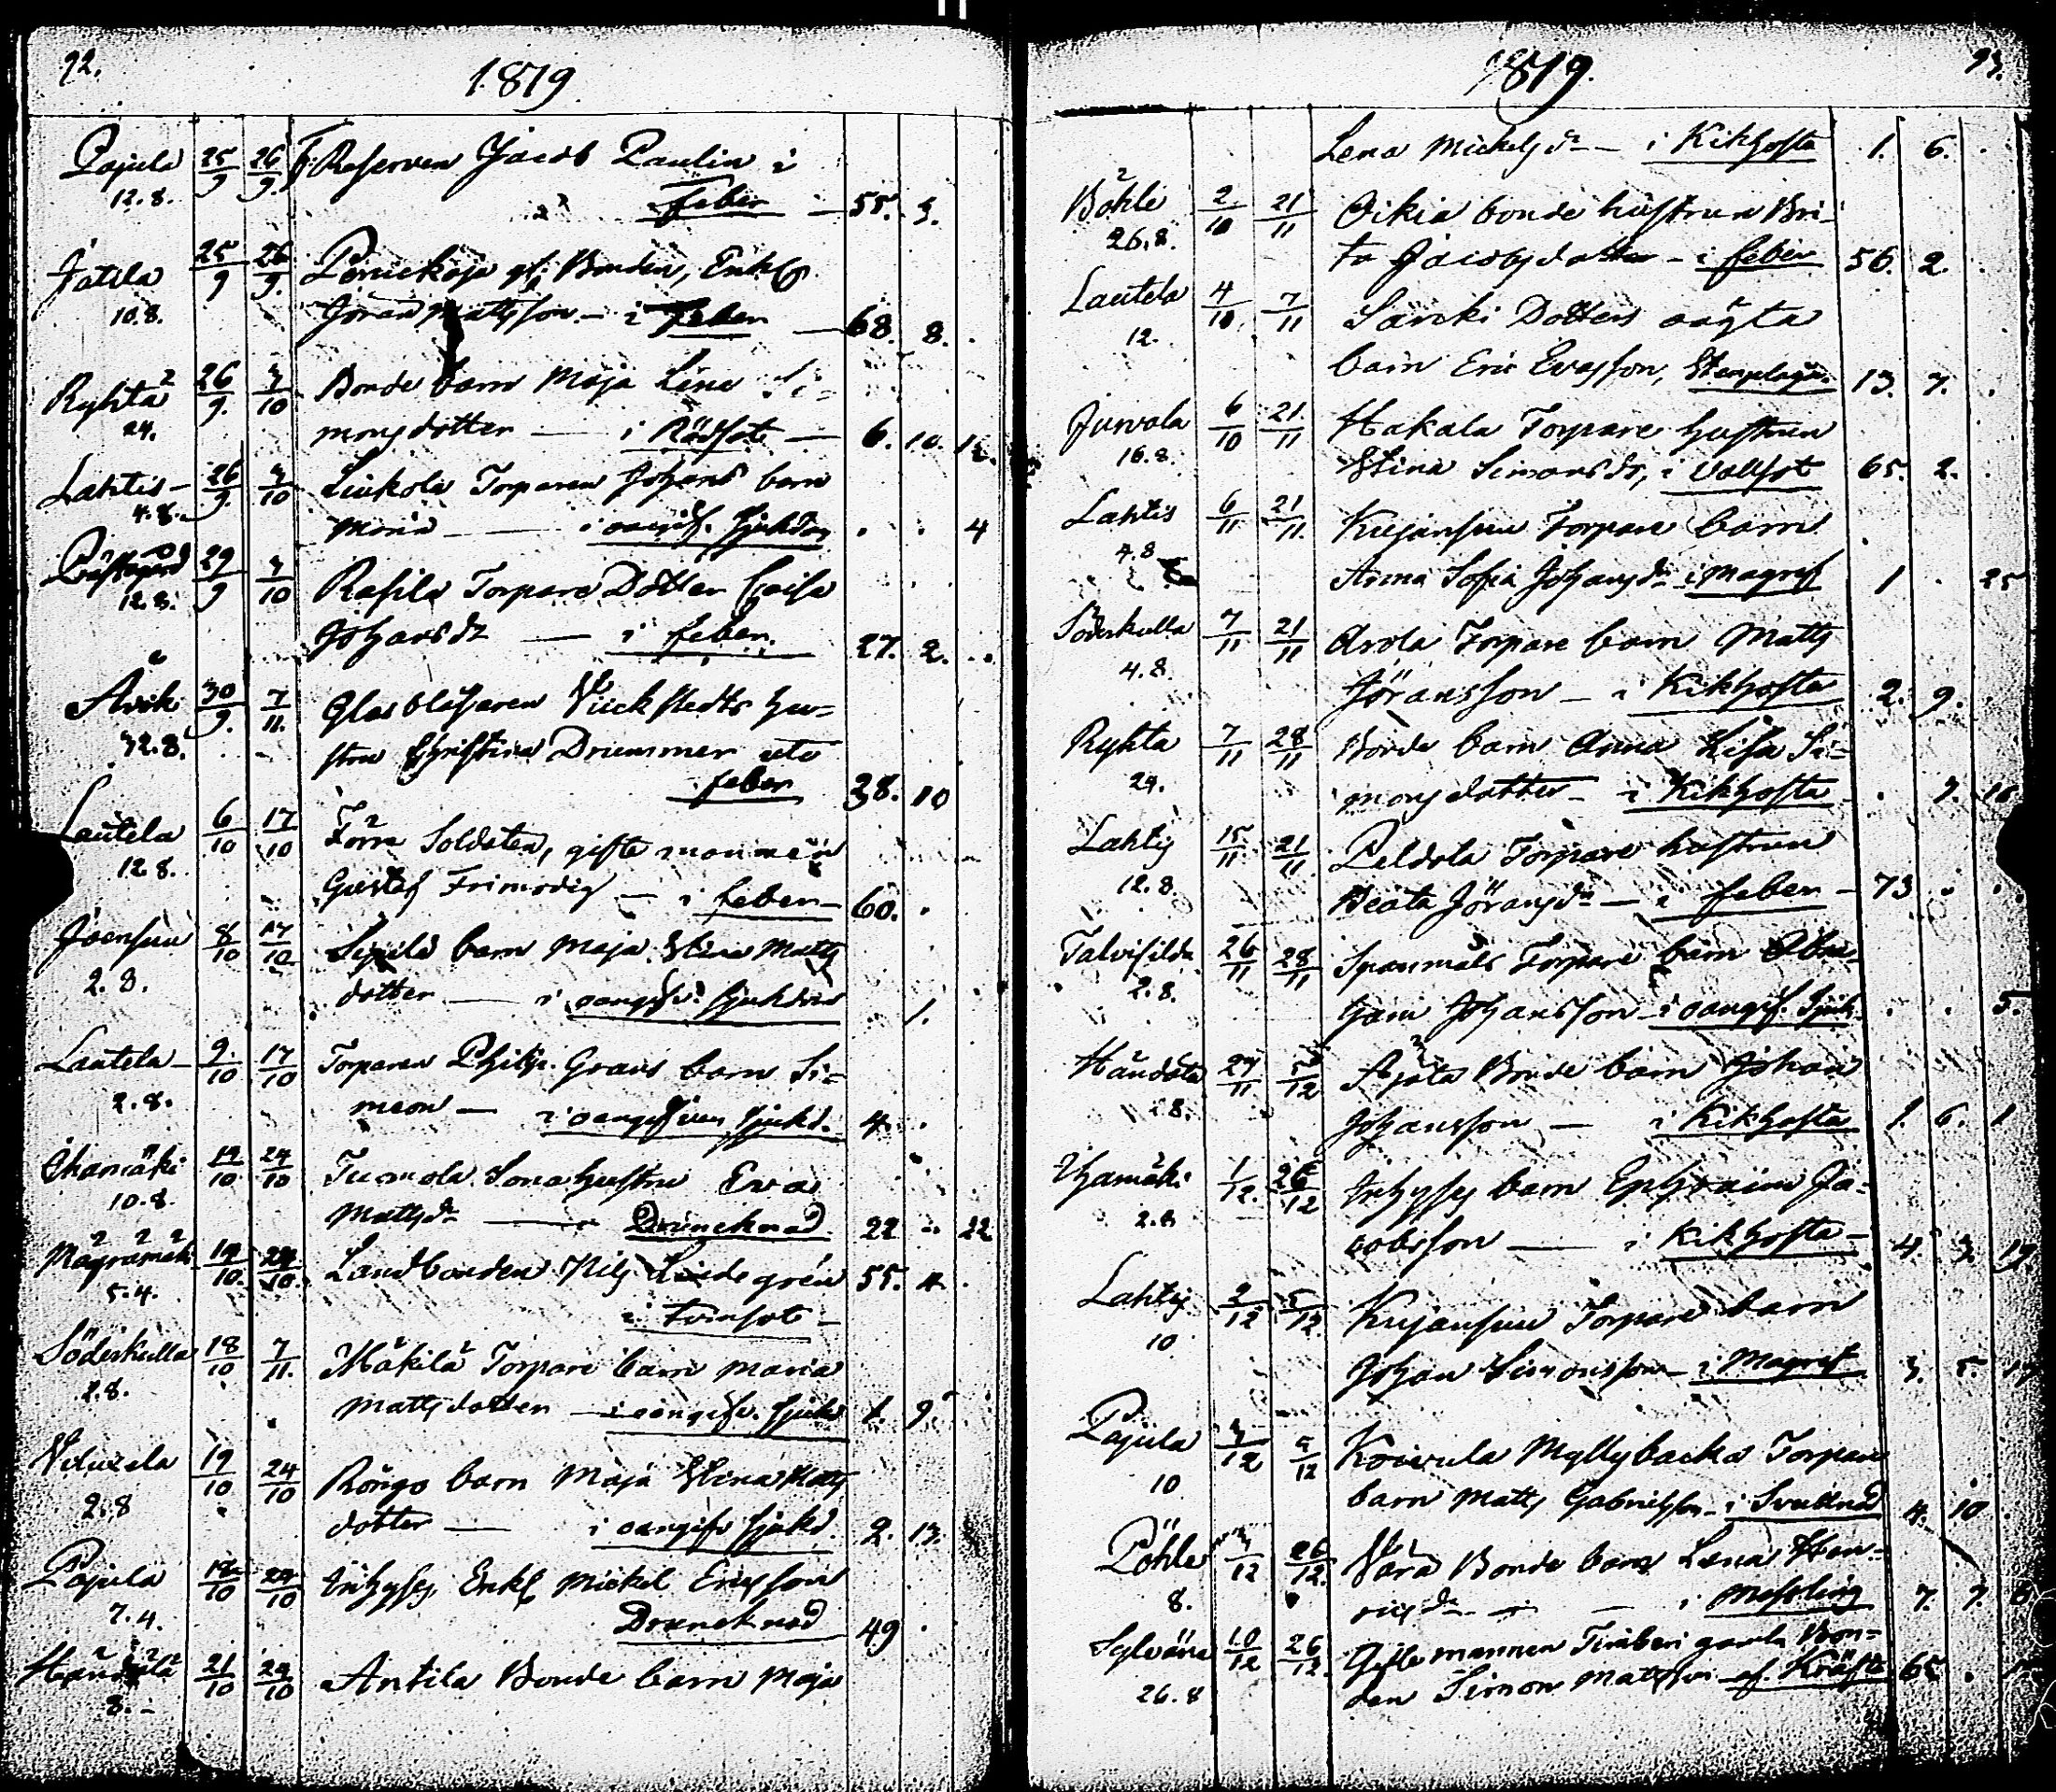 92.
1819.
Pajula 25/9 26/9 F. Reserven Jacob Paulin i
12.8. feber — 55. 3.
Jatila 25/9 26/9 Bonden, Enkl.
10.8. Jöran Mattsson — i feber — 68. 8.
Rykta 26/9 10 Bonde barn Maja Lena Si-
24. monsdotter — i Rödsot — 6. 10. 12.
Lahtis 26/9 10 Liukola Torparen Johans barn
4.8. Maria — i oangif. sjukdom . . 4
Prästgård 29/9 10 Rasila Torpare Dotter Caisa
12.8. Johansdr — i feber. 27. 2.
Åvik 30/9 7/11. Glasblåsaren Vickstedts hu-
32.8. stru Christina Drummer
feber 38. 10
Lautela 6/10 17/10 Förre Soldaten, gifte mannen
12.8. Gustaf Frimodig — i feber — 60. .
Joensuu 8/10 17/10 Sepilä barn Maja Stina Matts
2.8. dotter — i oangifv. sjukdom . 1.
Lautela — 9/10 17/10 Torparen Philip Grans barn Si-
2.8. meon — i oangifven sjukd. 4. .
Ihamäki 10 24/10 Tuomola Sonahustru Eva
10.8. Mattsdr — Drunknad 22 .. 22
10. 24/10. Landbonden Nils Lindegrén 55. 4.
5.4. i
Söderkulla 18/10 7/11. Häkilä Torpare barn Maria
2.8. Mattsdotter — i oangifv. sjukd 1. 9.
19/10 24/10 Röngo barn Maja Stina Matts
2.8 dotter — i oangifv sjukd. 2. 13.
Pajula 10 24/10 Inhyses Enkl Mickel Ericsson
7.4. Drunknad 49 .
Händälä 21/10 24/10 Antila Bonde barn Maja
8. —
1819. 93.
Lena Mickelsdr — i Kikhosta 1. 6. .
Böhle 2/10 21/11 Oikia bonde hustrun Bri-
26.8. ta Jacobsdotter — i feber 56. 2. .
Lautela 4/10 7/11 Särcki Dotters oägta
12. barn Eric Evasson, 13. 7. .
Juvvala 6/10 21/11 Hakala Torpare hustrun
16.8. Stina Simonsdr, i Vallsot 65. 2. .
Lahtis 6/11 21/11. Kujansuu Torpare barn
4.8 Anna Sofia Johansdr i Magref 1 . 25
Söderkulla 7/11 21/11 Arola Torpare barn Matts
4.8. Jöransson — i Kikhosta 2. 9.
Rykta 7/11 28/11 Bonde barn Anna Lisa Si-
24. monsdotter — i Kikhosta . 7. 10
Lahtis 15/11 21/11 Peldola Torpare hustrun
12.8. Beata Jöransdr — i feber — 73 . .
Talvisilda 26/11 28/11 Spanmäls Torpare barn Abra-
2.8. ham Johansson — i oangif. sjuk. . . 5.
Händälä 27/11 12 Äjälä Bonde barn Johan
8. Johansson — i Kikhosta 1. 6. 1
Ihamäki 1/12. 26/12 Inhyses barn Ephraim Ja-
2.8 cobsson — i Kikhosta — 4. 3. 19
Lahtis 2/12 5/12. Kujansuu Torpare barn
10 Johan Simonsson — i Magref 3. 5. 17
Pajula 12 5/12 Koivula Myllybacka Torpare
10 barn Matts Gabrielsson — i Svullnad 4. 10 .
Pöhle 12 26/12. Vara Bonde barn Lena Hen-
8. ricsdr — — i Messling 7. 7. 6
Sylvänä 10/12 26/12. Gifte mannen Timberi gamla Bon-
26.8 den Simon Mattsson — af Kräfta 65 .